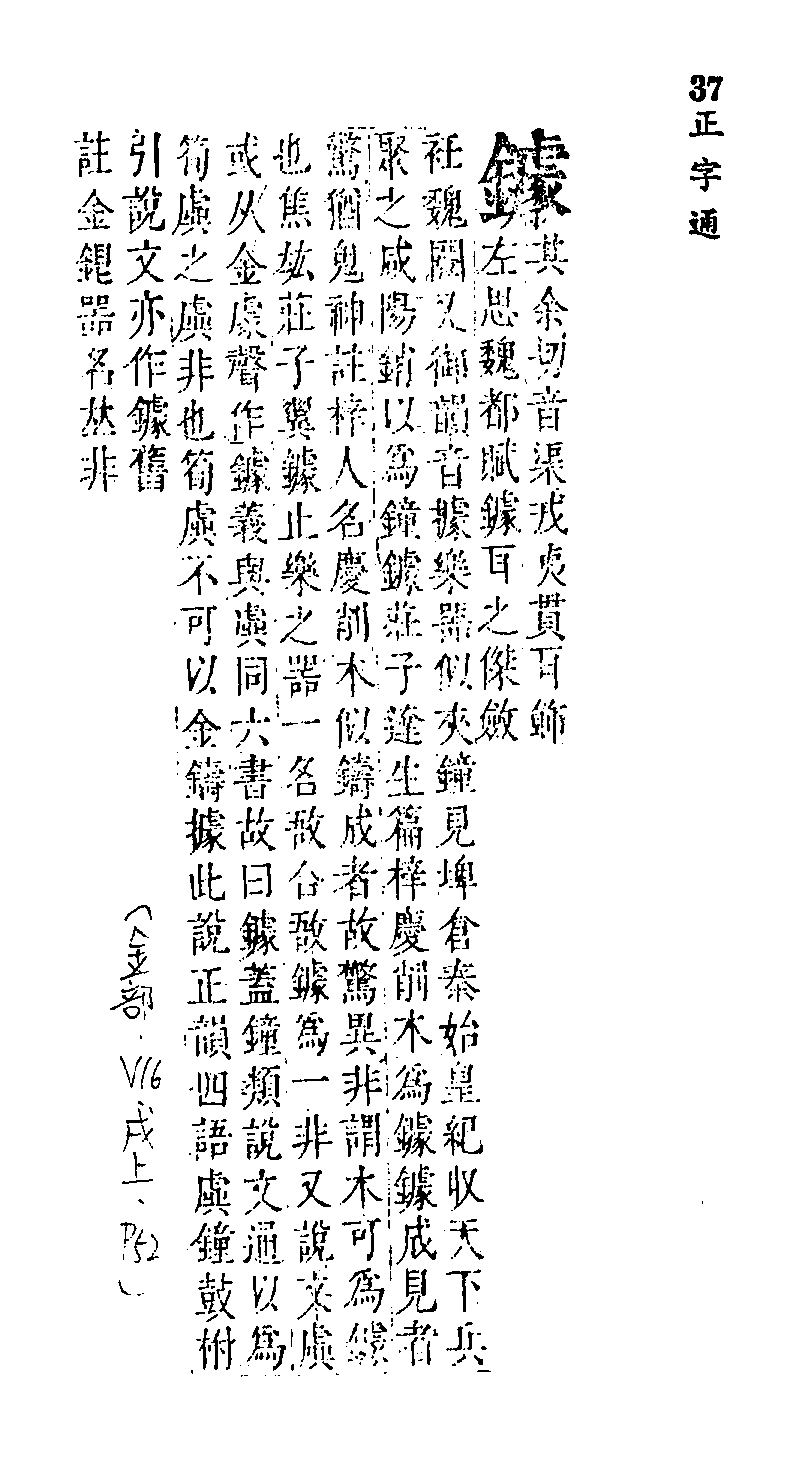 37 正字通
鐻
其余切音渠戎夷貫耳飾
左思魏都賦鐻耳之傑斂
衽魏闕又御韻音據樂器似夾鐘見埤倉秦始皇紀收天下兵
聚之咸陽銷以爲鐘鐻莊子達生篇梓慶削木爲鐻鐻成見者
驚猶鬼神註梓人名慶削木似鑄成者故驚異非謂木可爲鐻
也焦竑莊子翼鐻止樂之器一名敔合敔鐻爲一非又說文虡
或从金豦聲作鐻義與虡同六書故曰鐻蓋鐘類說文通以爲
筍虡之虡非也筍虡不可以金鑄據此說正韻四語虡鐘鼓柎
引說文亦作鐻舊
註金器名𠀤非
(金部．V16．戌上．P52)